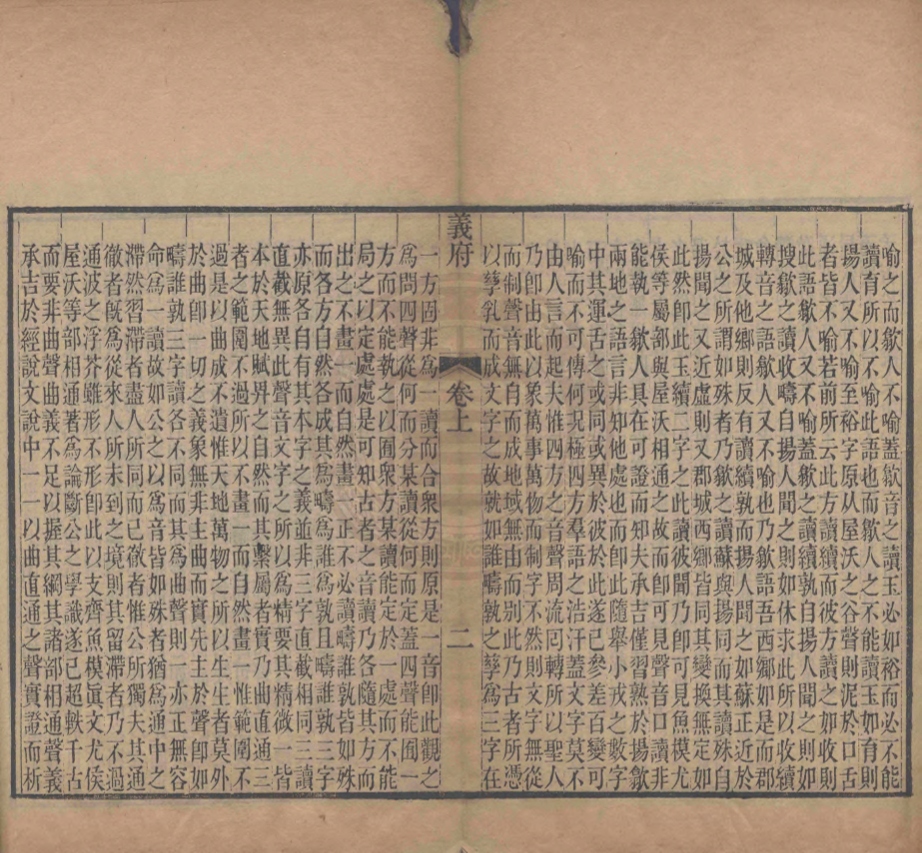 喻之而歙人不喻蓋歙音之讀玉必如裕而必不能
讀育所以不喻此語也而歙人之不能讀玉如育則
揚人又不喻至裕字原从屋沃之谷聲則泥於口舌
者皆不喻若前所云此通讀而彼方讀之如收則
此語歙人又不喻蓋歙之讀續孰自揚人聞之則如
搜歙之讀收疇自揚人聞之則如休求此所以收續
轉音之語歙人又不喻也乃歙語吾西鄉如是而郡
城及他鄉則反有讀續孰而揚人聞之如蘇正近於
公之所謂如殊者乃歙之讀蘇與揚同而讀殊自
揚聞之又近虛則又郡城西鄉皆同其變換無定如
此然卽此玉續二字之此讀彼聞乃卽可見魚模尤
侯等屬部與屋沃相通之故而卽可見聲音口讀非
能執一歙人具在可證也而知夫承吉僅習熟於揚歙
兩地之語言非知他處也而卽此隨舉小戎之數字
中其運舌之或同或異於彼於此遂已參差百變可
喻而不可傳何況極四方羣語之浩汗蓋文字莫不
由人言而起夫惟四方之音聲周流囘轉所以聖人
乃卽由此以象萬事萬物而制字不然則文字無從
而制聲音無自而成地域無由而别此乃古者所憑
以孳乳而成文字之故就如誰疇孰之孳爲三字在
義府
卷上
二
一方固非爲一讀而合衆方則原是一音卽此觀之
爲問四聲從何而分某讀從何而定蓋四聲能囿一
方而不能執之以囿衆方某讀能定於一處而不能
局之以定處處是可知古者之音讀乃各隨其方而
出之不畫一而自然畫一正不必讀疇誰孰皆如殊
而各方自然各成其爲疇爲誰爲孰且疇誰孰三字
亦原各自有其本字之義並非三字直截相同三讀
直截無異此聲音文字之所以爲精要其精微一皆
本於天地賦畀之自然而其繫屬者實乃曲直通三
者之範圍不過所以不畫一而自然畫一惟範圍不
過是以曲成不遺惟天地萬物之所以生生者莫外
於曲卽一切之義象無非主曲而實先主於聲卽如
疇誰孰三字讀各不同而其爲曲聲則一亦正無容
命爲一讀故如公之以爲音皆如殊者猶爲通中之
滯然習滯者盡人所同而已徹者惟公所獨夫其通
徹者旣爲從來人所未到之境則其留滯者乃不過
通波之浮芥雖形不形卽此以支齊魚模眞文尤侯
屋沃等部相通著爲論斷公之學識遂已超軼千古
而要非曲聲曲義不足以握其諸部相通聲義
承吉於經說文說中一一以曲直通之聲實證而析